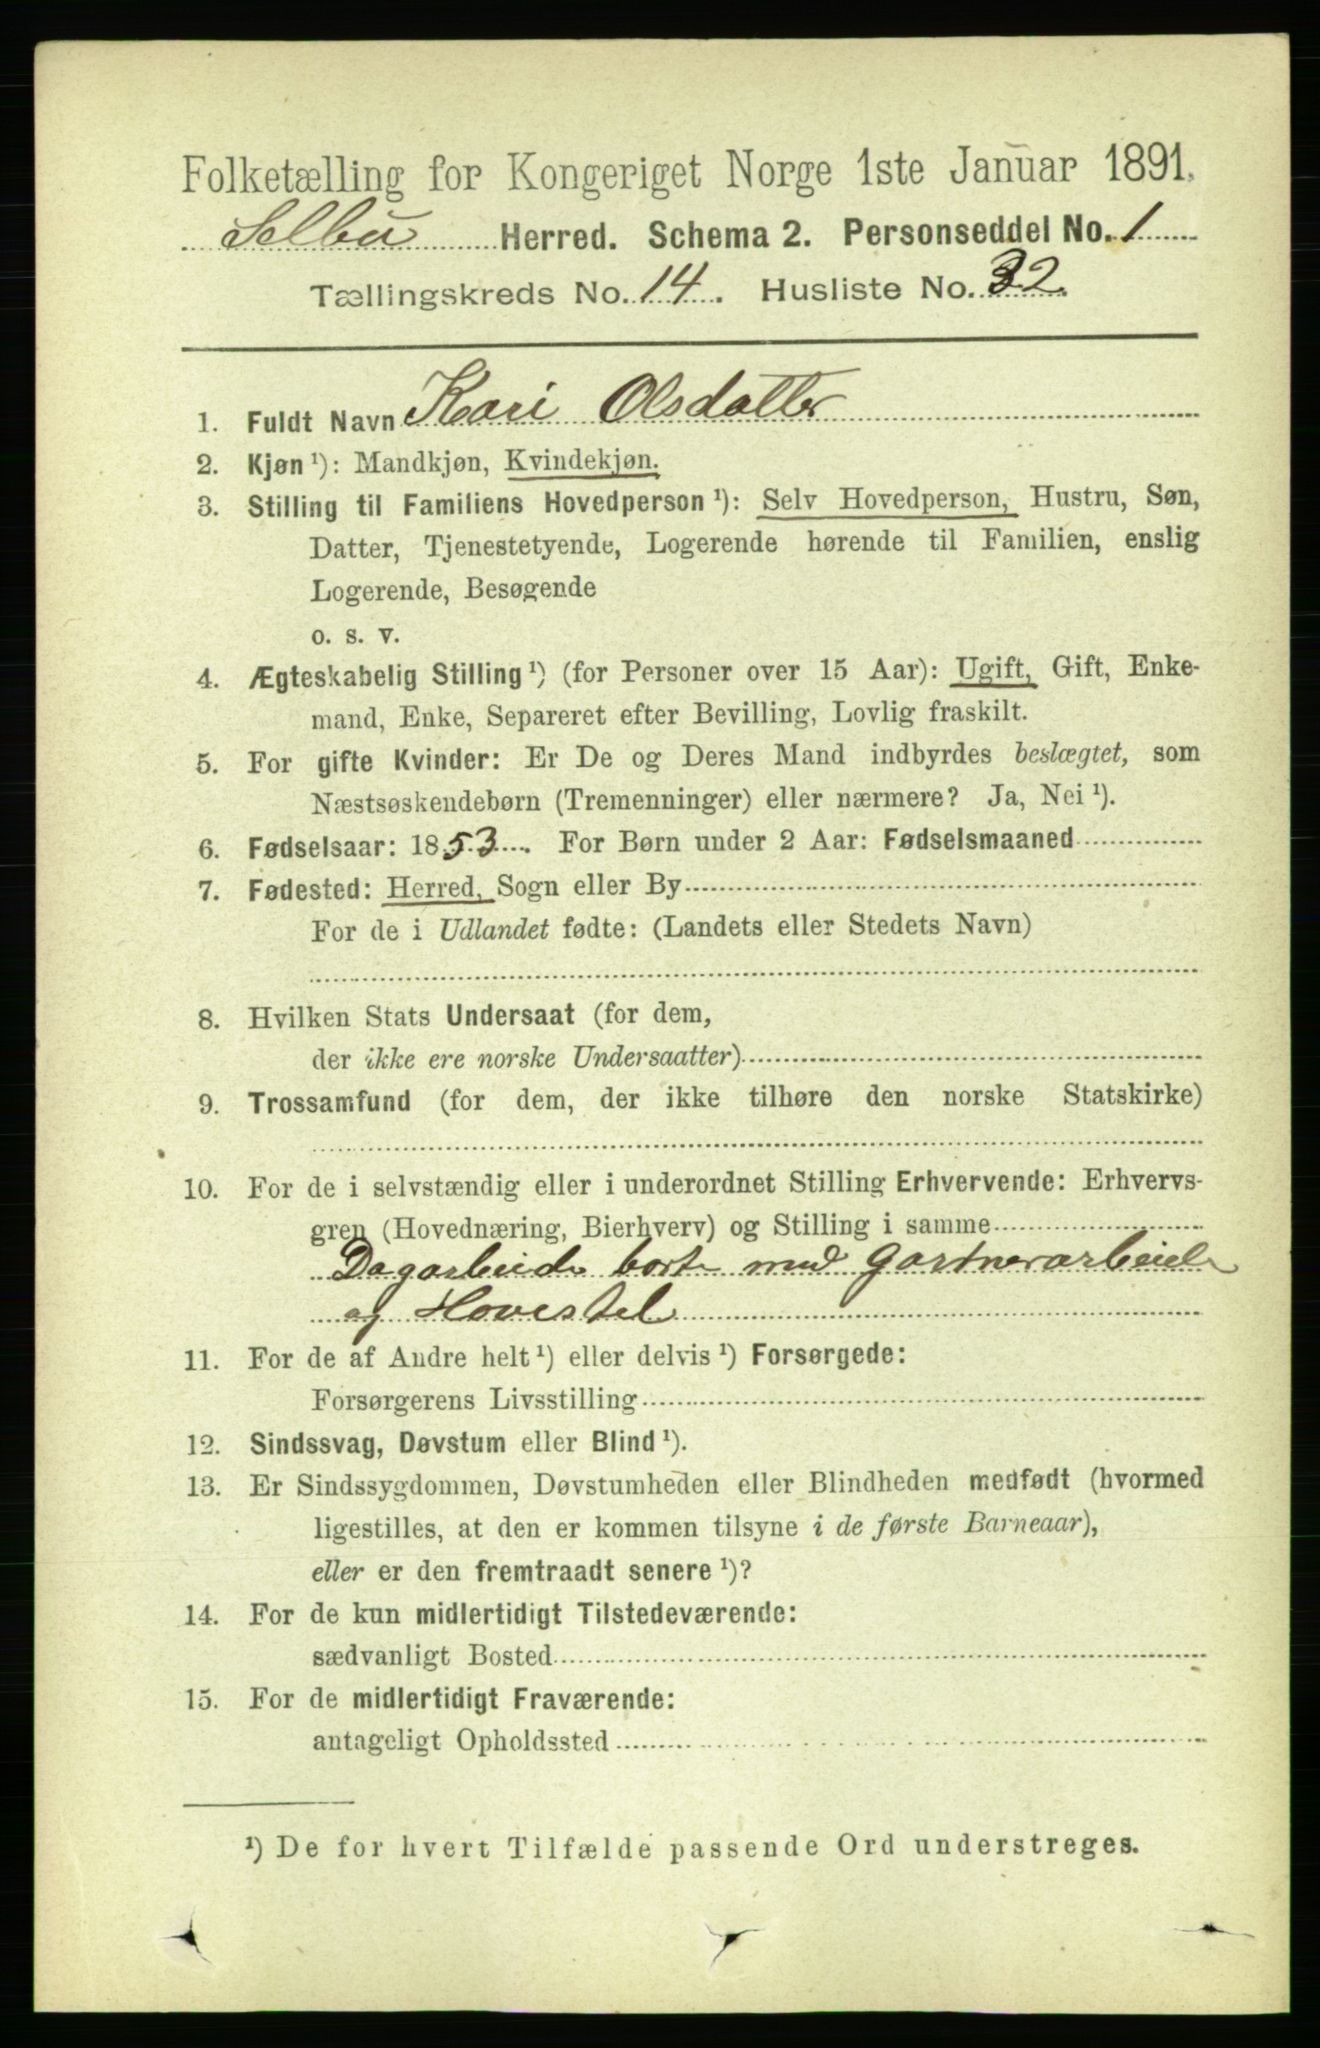 Folketælling for Kongeriget Norge 1ste Januar 1891.
Selbu Herred. Schema 2. Personseddel No. 1
Tællingskreds No. 14. Husliste No. 32.
1. Fuldt Navn Kari Olsdatter
2. Kjøn ¹): Mandkjøn, Kvindekjøn.
3. Stilling til Familiens Hovedperson ¹): Selv Hovedperson, Hustru, Søn,
Datter, Tjenestetyende, Logerende hørende til Familien, enslig
Logerende, Besøgende
o. s. v.
4. Ægteskabelig Stilling ¹) (for Personer over 15 Aar): Ugift, Gift, Enke-
mand, Enke, Separeret efter Bevilling, Lovlig fraskilt.
5. For gifte Kvinder: Er De og Deres Mand indbyrdes beslægtet, som
Næstsøskendebørn (Tremenninger) eller nærmere? Ja, Nei ¹).
6. Fødselsaar: 1853. For Børn under 2 Aar: Fødselsmaaned
7. Fødested: Herred, Sogn eller By
For de i Udlandet fødte: (Landets eller Stedets Navn)
8. Hvilken Stats Undersaat (for dem,
der ikke ere norske Undersaatter)
9. Trossamfund (for dem, der ikke tilhøre den norske Statskirke)
10. For de i selvstændig eller i underordnet Stilling Erhvervende: Erhvervs-
gren (Hovednæring, Bierhverv) og Stilling i samme
Dagarbeide borte med Gartnerarbeide
og
11. For de af Andre helt ¹) eller delvis ¹) Forsørgede:
Forsørgerens Livsstilling
12. Sindssvag, Døvstum eller Blind ¹).
13. Er Sindssygdommen, Døvstumheden eller Blindheden medfødt (hvormed
ligestilles, at den er kommen tilsyne i de første Barneaar),
eller er den fremtraadt senere ¹)?
14. For de kun midlertidigt Tilstedeværende:
sædvanligt Bosted
15. For de midlertidigt Fraværende:
antageligt Opholdssted
¹) De for hvert Tilfælde passende Ord understreges.